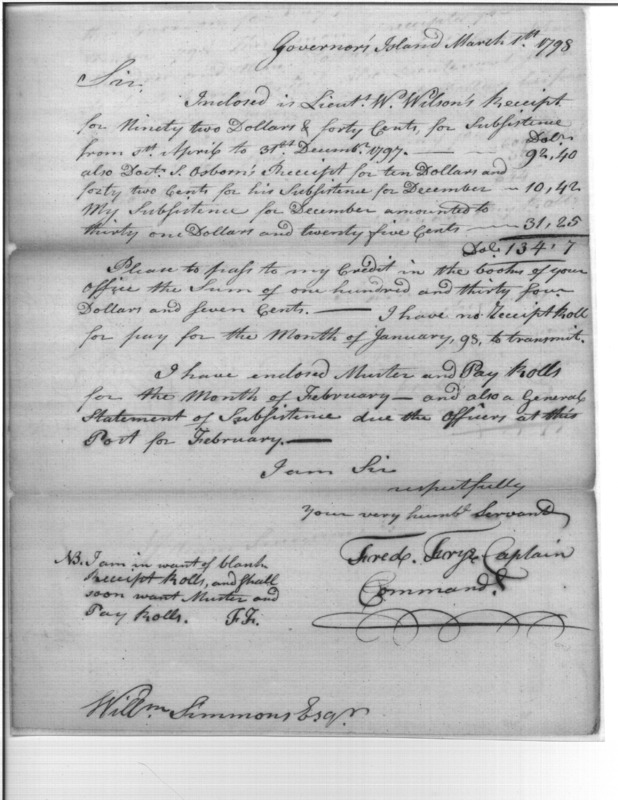 Governor's Island March 1st. 1798
Sir.
Inclosed is Lieut. Wm Wilson's Receipt
for Ninety two Dollars & forty Cents, for Subsistence Dolr.
from 1st April to 31st. Decembr. 1797. — — 92,40
also Doct. S. Osborn's Receipt for ten Dollars and
forty two Cents for his Subsistence for December — 10,42
My Subsistence for December amounted to
thirty one Dollars and twenty five Cents — 31,25
Dol. 134,7
Please to pass to my Credit in the books of your
Office the Sum of one hundred and thirty four
Dollars and seven Cents. — I have no Receipt Roll
for pay for the Month of January, 98, to transmit.
I have enclosed Muster and Pay Rolls
for the Month of February — and also a General
Statement of Subsistence due the Officers at this
Post for February. —
I am Sir
respectfully
Your very humbl. Servant
Fred. Frye Captain
Command.t
NB. I am in want of blank
Receipt Rolls, and shall
soon want Muster and
Pay Rolls. FF.
Willm Simmons Esqr